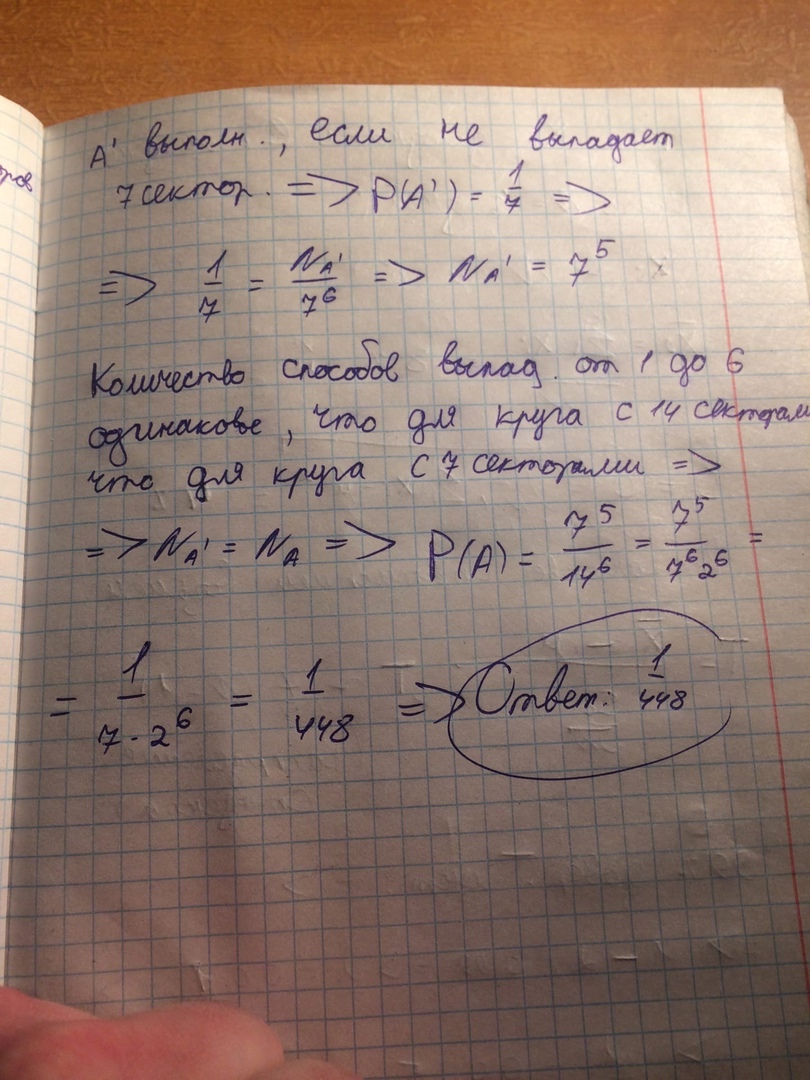 A' выполн., если не выпадает
7 сектор. => P(A') = 1/7 =>
=> 1/7 = N_A'/7^6 => N_A' = 7^5
Количество способов выпад. от 1 до 6
одинаковое, что для круга с 14 секторами
что для круга с 7 секторами =>
=> N_A' = N_A => P(A) = 7^5/14^6 = 7^5/7^6 2^6 =
= 1/7·2^6 = 1/448 => Ответ: 1/448